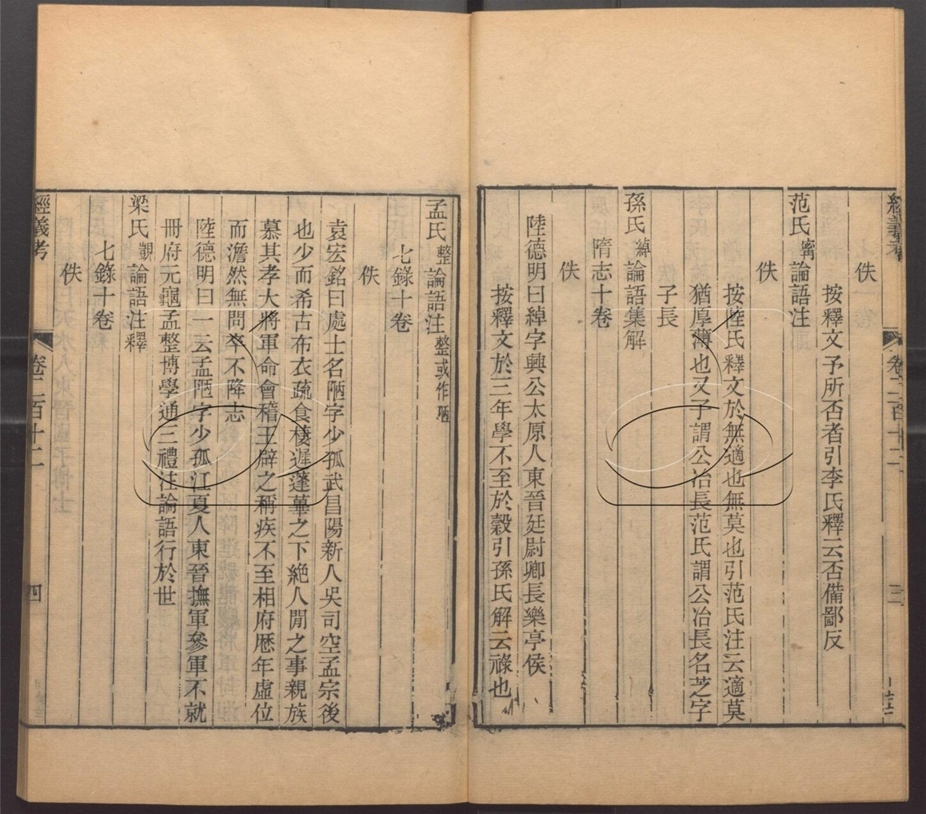 佚
按釋文予所否者引李氏釋云否備鄙反
范氏甯論語注
佚
按陸氏釋文於無適也無莫也引范氏注云適莫
猶厚薄也又子謂公冶長范氏謂公冶長名芝字
子長
孫氏綽論語集解
隋志十卷
佚
陸德明曰綽字興公太原人東晉廷尉卿長樂亭侯
按釋文於三年學不至於穀引孫氏解云祿也
經義考
卷二百十二
三
孟氏整論語注整或作陋
七錄十卷
佚
袁宏銘曰處士名陋字少孤武昌陽新人吳司空孟宗後
也少而希古布衣疏食棲遲蓬蓽之下絕人閒之事親族
慕其孝大將軍命會稽王辟之稱疾不至相府歷年虛位
而澹然無問卒不降志
陸德明曰一云孟陋字少孤江夏人東晉撫軍參軍不就
冊府元龜孟整博學通三禮注論語行於世
梁氏覬論語注釋
七錄十卷
佚
經義考
卷二百十二
四